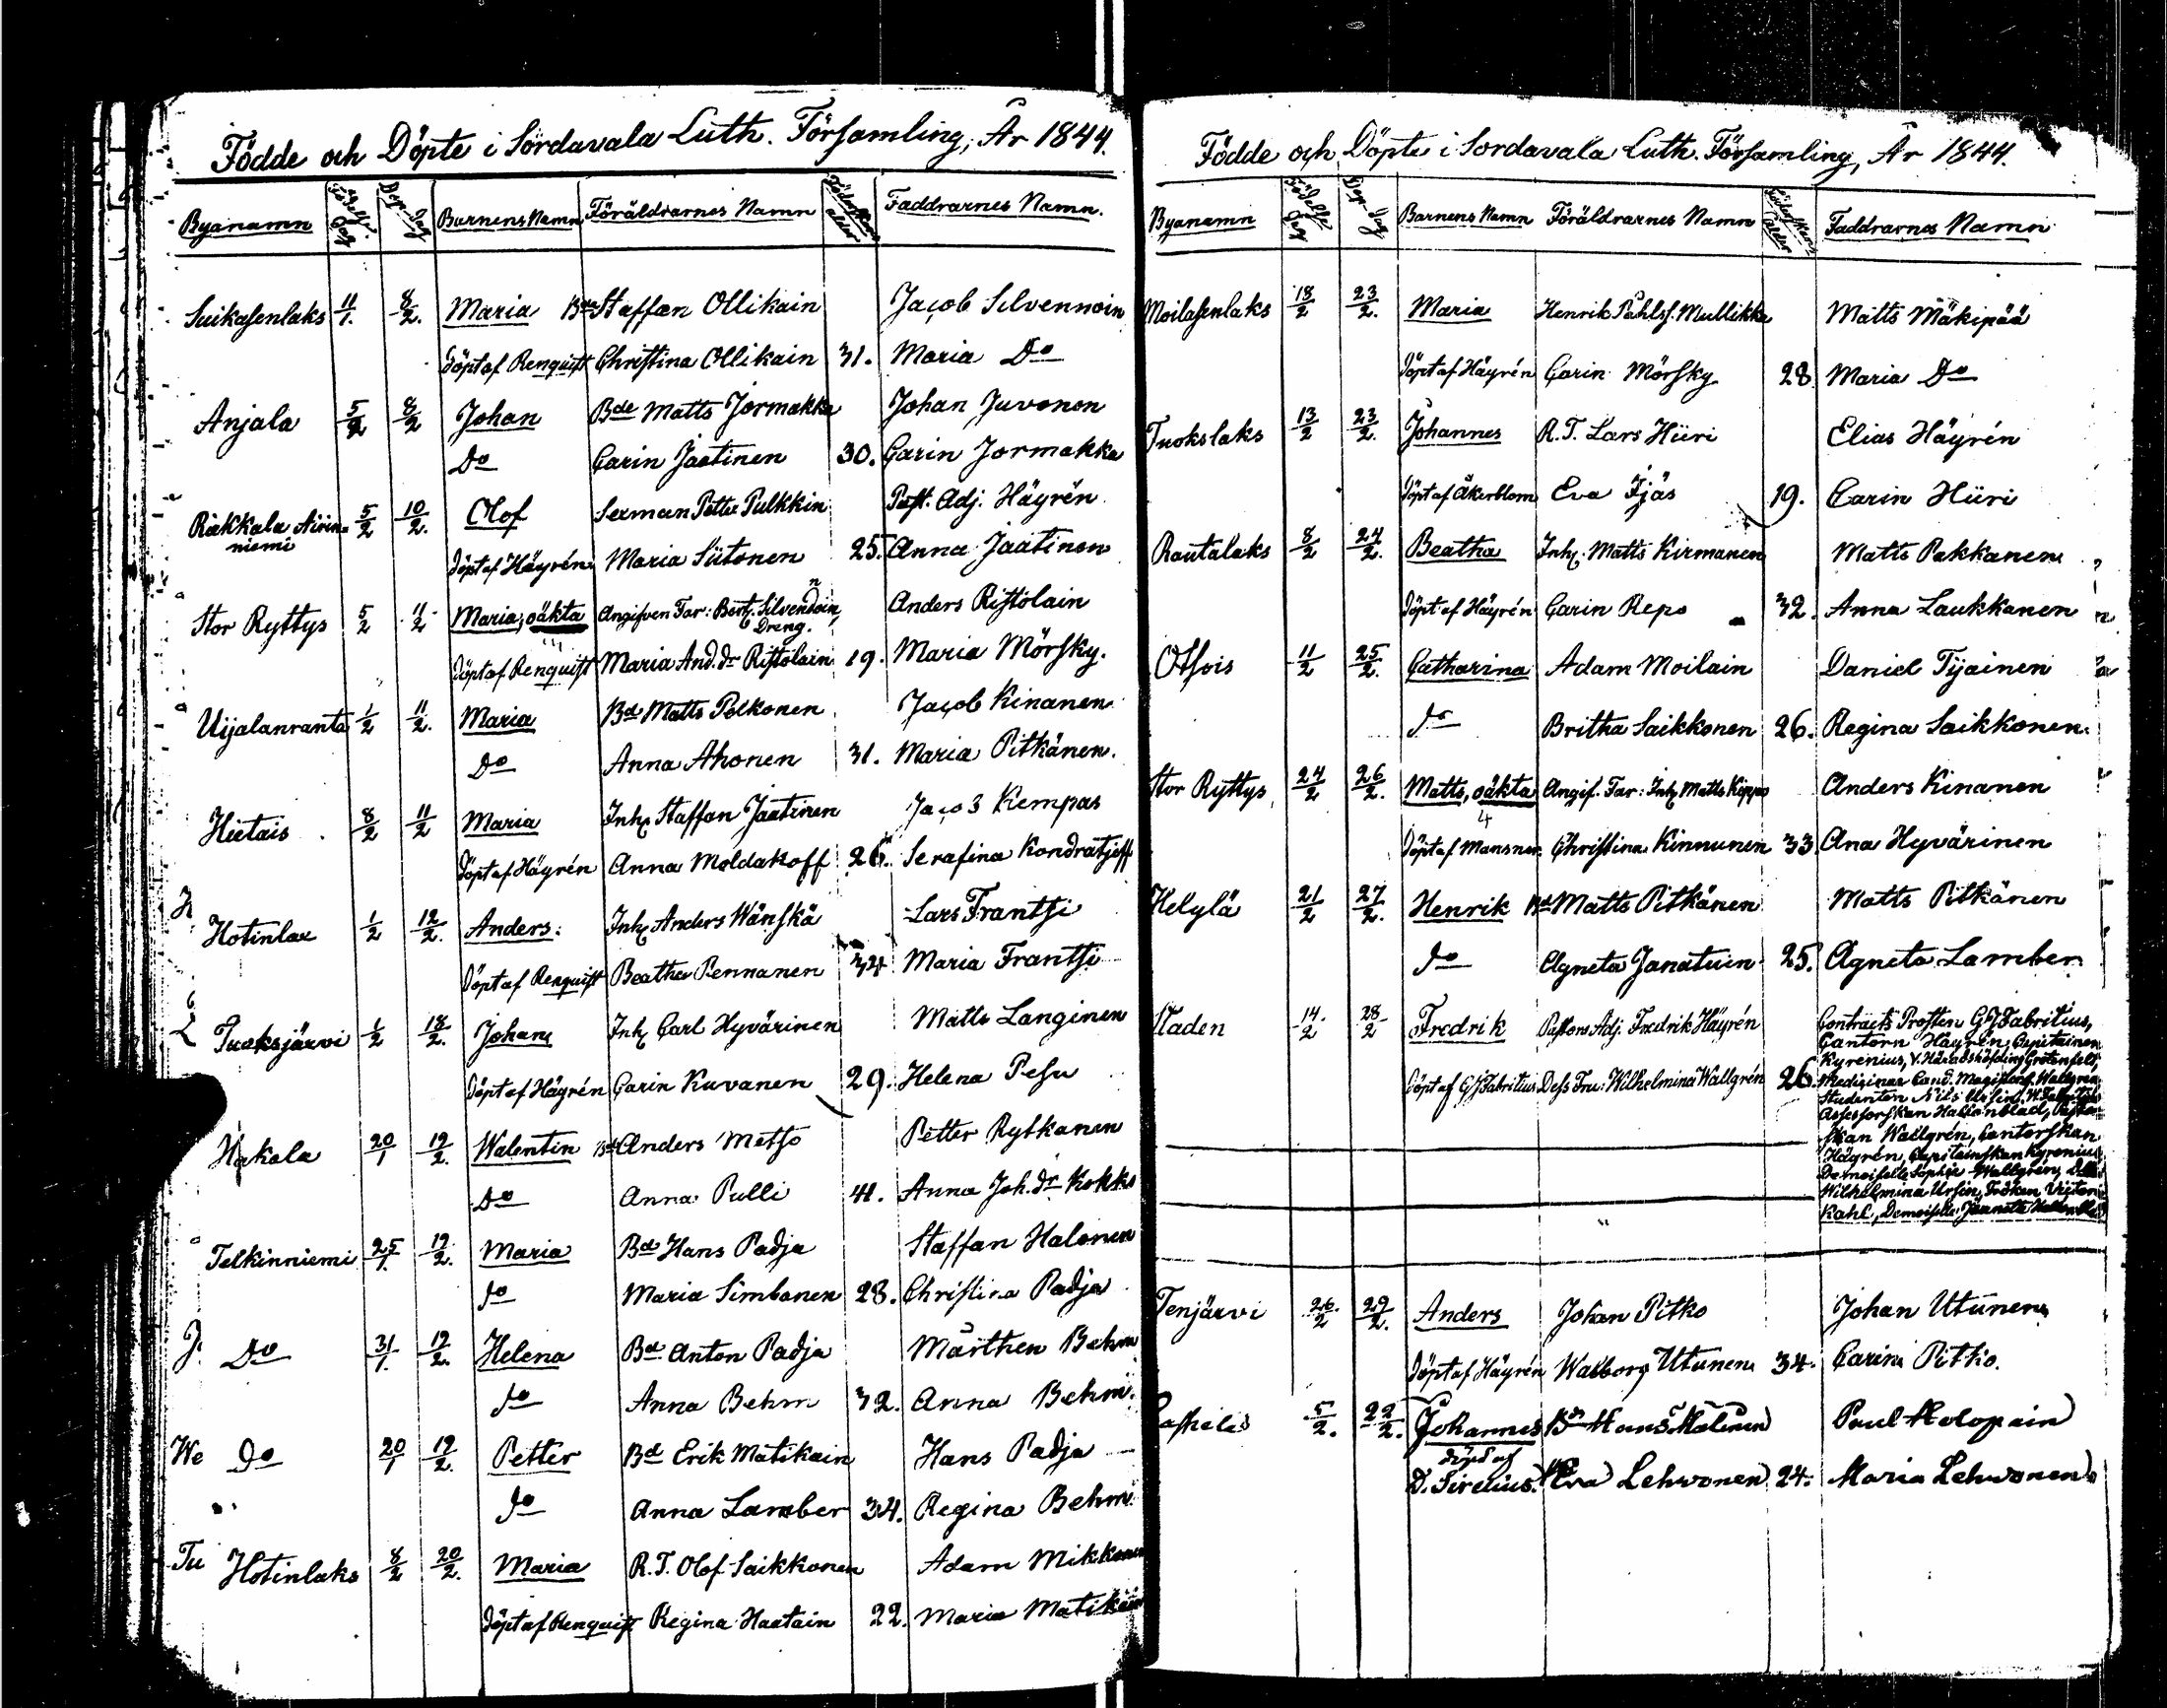 Födde och Döpte i Sordavala Luth. Församling, År 1844.
Byanamn Födelse Dag Dop-Dag Barnens Namn Föräldrarnes Namn Föderskans ålder Faddrarnes Namn.
Suikasenlaks 11/1. 8/2. Maria Bde Staffan Ollikain Jacob Silvennoin
Döpt af Renquist Christina Ollikain 31. Maria Do
Anjala 5/2 8/2 Johan Bde Matts Jormakka Johan Juvonen
Do Carin Jaatinen 30. Carin Jormakka
Riekkala Airin- 5/2 10/2. Olof Sexman Petter Pulkkin Past. Adj. Häyrén
niemi
Döpt af Häyrén Maria Siitonen 25. Anna Jaatinen
Stor Ryttys 5/2 11/2 Maria, oäkta Angifven Far: Silvendoin, Anders Ristolain
Dreng.
Döpt af Renquist Maria And. dr Ristolain 19. Maria Mörsky.
Uijalanranta 1/2 11/2. Maria Bd Matts Polkonen Jacob Kinanen
Do Anna Ahonen 31. Maria Pitkänen.
Hietais 8/2 11/2 Maria Inh. Staffan Jaatinen Jacob Kempas
Döpt af Häyrén Anna Moldakoff 26. Serafina Kondratjeff
Hotinlax 1/2 12/2. Anders. Inh. Anders Wänskä Lars Frantsi
Döpt af Renquist Beatha Pennanen Maria Frantsi
Tuoksjärvi 1/2 18/2. Johan Inh. Carl Hyvärinen Matts Langinen
Döpt af Häyrén Carin Kuvanen 29. Helena Pesu
Hakala 20/1 19/2. Walentin Bd Anders Metso Petter Rytkanen
Do Anna Pulli 41. Anna Joh. dr Kokko
Telkinniemi 25/1. 19/2. Maria Bd Hans Padja Staffan Halonen
do Maria Simbanen 28. Christina Padja
J. Do 31/1. 19/2. Helena Bd Anton Padja Mårthen Behm
do Anna Behm 32. Anna Behm.
We Do 20/1 19/2. Petter Bd Erik Matikain Hans Padja
do Anna Lamber 34. Regina Behm
Tu Hotinlaks 8/2 20/2. Maria R.T. Olof Saikkonen Adam Mikkonen
Döpt af Renquist Regina Haatain 22. Maria
Födde och Döpte i Sordavala Luth. Församling, År 1844.
Byanamn Födelse Dag Dop-Dag Barnens Namn Föräldrarnes Namn Föderskans Ålder Faddrarnes Namn
Moilasenlaks 18/2 23/2. Maria Henrik Påhlss. Mullikka Matts Mäkipää
Döpt af Häyrén Carin Mörsky 28 Maria Do
Tuokslaks 13/2 23/2. Johannes R.T. Lars Hiiri Elias Häyrén
Döpt af Åkerblom Eva Ijäs 19. Carin Hiiri
Rautalaks 8/2 24/2. Beatha Inh. Matts Kirmanen Matts Pakkanen
Döpt af Häyrén Carin Repo 32. Anna Laukkanen
Otsois 11/2 25/2. Catharina Adam Moilain Daniel Tyäinen
do Britha Saikkonen 26. Regina Saikkonen.
Stor Ryttys 24/2 26/2. Matts, oäkta Angif. Far: Inh. Matts Anders Kinanen
4
Döpt af Mansner Christina Kinnunen 33 Ana Hyvärinen
Helylä 21/2 27/2. Henrik Bd Matts Pitkänen Matts Pitkänen
do Agneta Janatuin 25. Agneta Lamber
Staden 14/2 28/2 Fredrik Pastors Adj. Fredrik Häyrén Contracts Prosten G J Fabritius,
Cantorn Häyrén, Capitainen
Kyrenius, V. Häradshöfding Grotenfelt,
Döpt af G J Fabritius Dess Fru: Wilhelmina Wallgrén 26. Medicinae Cand. Wallgren
Studenten Nils Ursin,
Assessorskan Hallonblad,
skan Wallgrén, Cantorskan
Häyrén, Capitainskan Kyrenius
Demoiselle Sophie Wallgrén,
Wilhelmina Ursin, Fröken
Kahl, Demoiselle
Tenjärvi 26/2 29/2. Anders Johan Pitko Johan Utunen
Döpt af Häyrén Walborg Utunen 34. Carin Pitko.
5/2. 22/2. Johannes Bd Hans Paul Holopain
döpt af
D. Sirelius. Eva Lehvonen 24. Maria Lehvonen